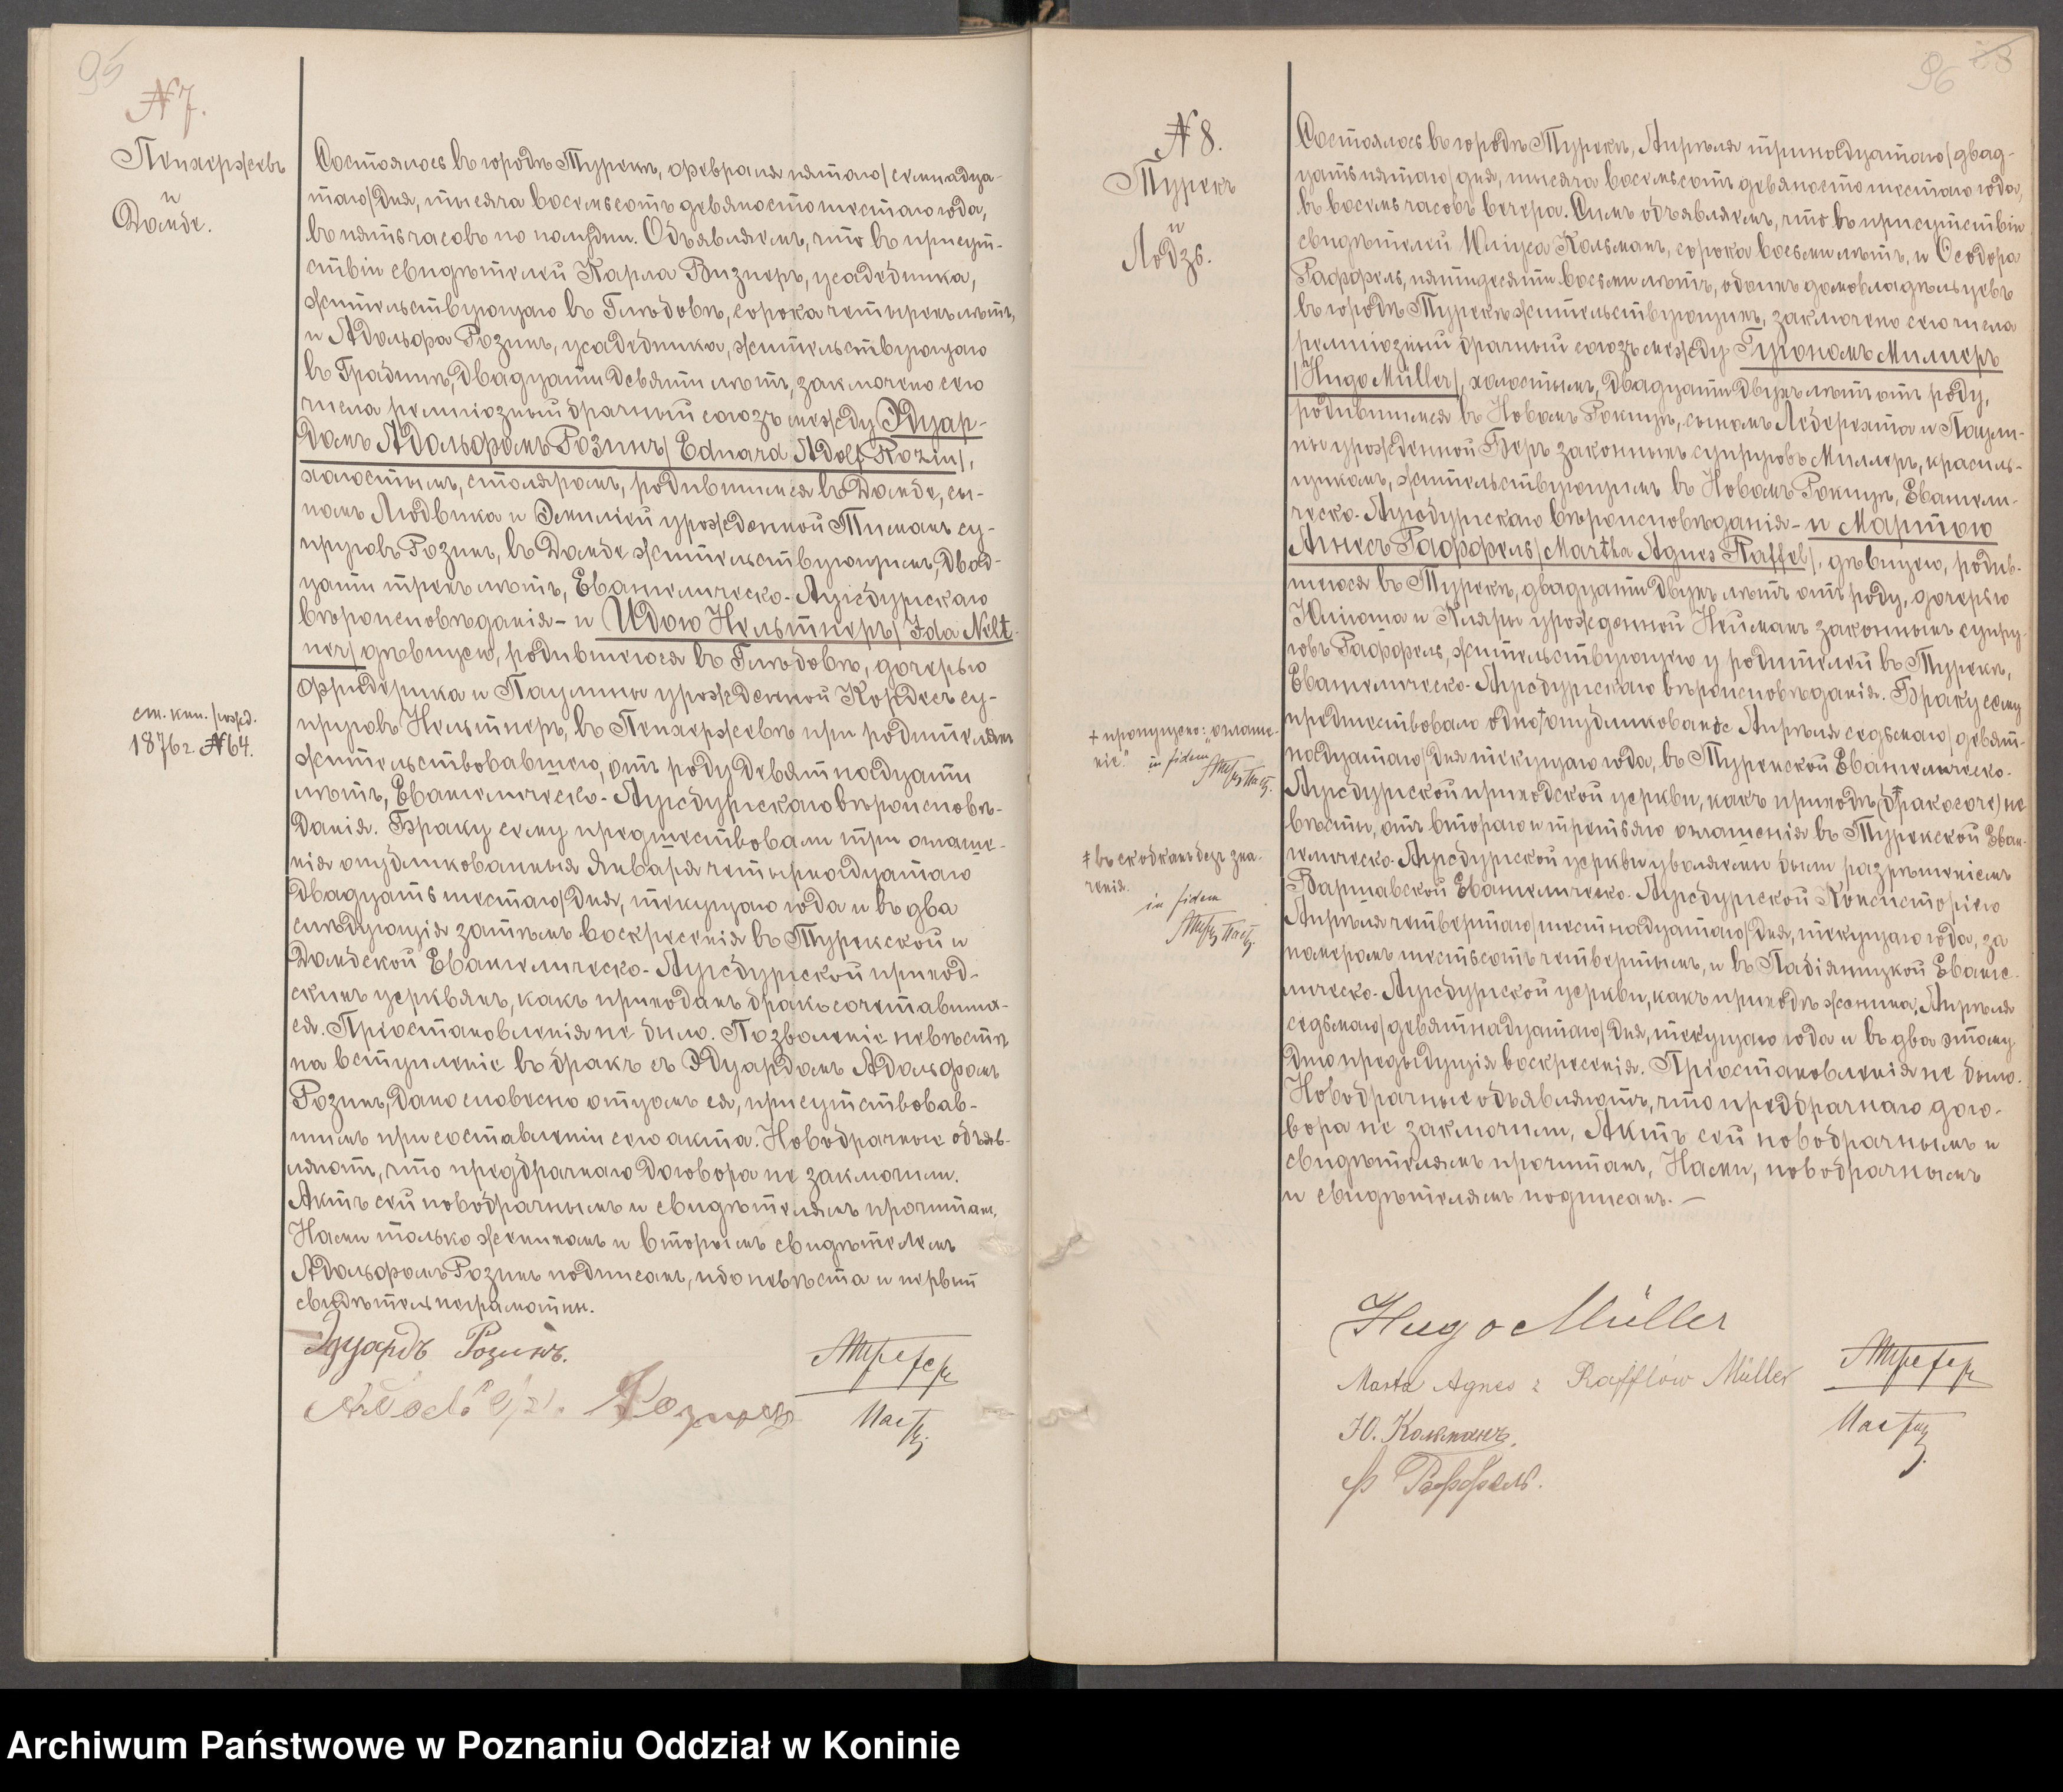 95
№ 7.
Пенхержевъ
и
Домбе.
Состоялось въ городѣ Турекѣ, февраля пятаго/семнадца-
таго/дня, тысяча восемьсотъ девяносто шестаго года,
въ пять часовъ по полудни. Объявляемъ, что въ присут-
ствіи свидѣтелей Карла Визнеръ, усадебника,
жительствующаго въ , сорока четырехъ лѣтъ,
и Адольфа Розинъ, усадебника, жительствующаго
въ , двадцати девяти лѣтъ, заключенъ сего
числа религіозный брачный союзъ между Эдуар-
домъ Адольфомъ Розинъ/Eduard Adolf Rozin/,
холостымъ, столяромъ, родившимся въ Домбе, сы-
номъ Людвика и Эмиліей урожденной Тиманъ су-
пруговъ Розинъ, въ Домбе жительствующимъ, двад-
цати трехъ лѣтъ, Евангелическо-Аугсбургскаго
вѣроисповѣданія – и Идою Нельтнеръ/Ida Nelt-
ner/дѣвицею, родившеюся въ , дочерью
Фридерика и Паулины урожденной су-
пруговъ Нельтнеръ, въ Пенхержевѣ при родителяхъ
жительствовавшею, отъ роду девятнадцати
лѣтъ, Евангелическо-Аугсбургскаго вѣроисповѣ-
данія. Браку сему предшествовали три оглаше-
нія опубликованныя Января четырнадцатаго
двадцать шестаго/дня, текущаго года и въ два
слѣдующія затѣмъ воскресенія въ Турекской и
Домбской Евангелическо-Аугсбургской приход-
скихъ церквяхъ, какъ приходахъ бракъ сочетавших-
ся. Пріостановленія не было. Позволеніе невѣстѣ
на вступленіе въ бракъ съ Эдуардомъ Адольфомъ
Розинъ, дано словесно отцомъ ея, присутствовав-
шимъ при составленіи сего акта. Новобрачные объяв-
ляютъ, что предбрачнаго договора не заключили.
Актъ сей новобрачнымъ и свидѣтелямъ прочитанъ,
Нами только женихомъ и вторымъ свидѣтелемъ
Адольфомъ Розинъ подписанъ, ибо невѣста и первый
свидѣтель неграмотны.
см. кн. /рожд.
1876 г. № 64.
Эдуардъ Розинъ.
96 88
№ 8.
Турекъ
и
Лодзь.
Состоялось въ городѣ Турекѣ, Апрѣля тринадцатаго/двад-
цать пятаго/дня, тысяча восемьсотъ девяносто шестаго года,
въ восемь часовъ вечера. Симъ объявляемъ, что въ присутствіи
свидѣтелей Юліуса Кольманъ, сорока восьми лѣтъ, и Ѳеодора
Раффель, пятидесяти восьми лѣтъ, обоихъ домовладѣльцевъ
въ городѣ Турекѣ жительствующихъ, заключенъ сего числа
религіозный брачный союзъ между Гугономъ Миллеръ
/Hugo Müller/, холостымъ, двадцати двухъ лѣтъ отъ роду,
родившимся въ Новомъ Рокицѣ, сыномъ Лебрехта и Паули-
ны урожденной Беръ законныхъ супруговъ Миллеръ, красиль-
щикомъ, жительствующимъ въ Новомъ Рокицѣ, Евангели-
ческо-Аугсбургскаго вѣроисповѣданія – и Мартою
Агнесъ Раффель/Martha Agnes Raffel/, дѣвицею, родив-
шеюся въ Турекѣ, двадцати двухъ лѣтъ отъ роду, дочерью
Юліюша и Клары урожденной Нейманъ законныхъ супру-
говъ Раффель, жительствующею у родителей въ Турекѣ,
Евангелическо-Аугсбургскаго вѣроисповѣданія. Браку сему
предшествовало одно + опубликованое Апрѣля седьмаго/девят-
надцатаго/дня текущаго года, въ Турекской Евангелическо-
Аугсбургской приходской церкви, какъ приходѣ (бракосоче) не-
вѣсты, отъ втораго и третьяго оглашенія въ Турекской Еван-
гелическо-Аугсбургской церкви уволены были разрѣшеніемъ
Варшавской Евангелическо-Аугсбургской Консисторіею
Апрѣля четвертаго/шестнадцатаго/дня, текущаго года, за
номеромъ шестьсотъ четвертымъ, и въ Пабіяницкой Еванге-
лическо-Аугсбургской церкви, какъ приходѣ жениха, Апрѣля
седьмаго/девятнадцатаго/дня, текущаго года и въ два этому
дню предыдущія воскресенія. Пріостановленія не было.
Новобрачные объявляютъ, что предбрачнаго дого-
вора не заключили, Актъ сей новобрачнымъ и
свидѣтелямъ прочитанъ, Нами, новобрачнымъ
и свидѣтелямъ подписанъ. –
+ пропущено: „оглаше-
ніе." in fidem
ǂ въ скобкахъ безъ зна-
ченія.
in fidem
Hugo Müller
Marta Agnes z Rafflów Müller
Ю. Кольманъ.
Ф Раффель.
Archiwum Państwowe w Poznaniu Oddział w Koninie